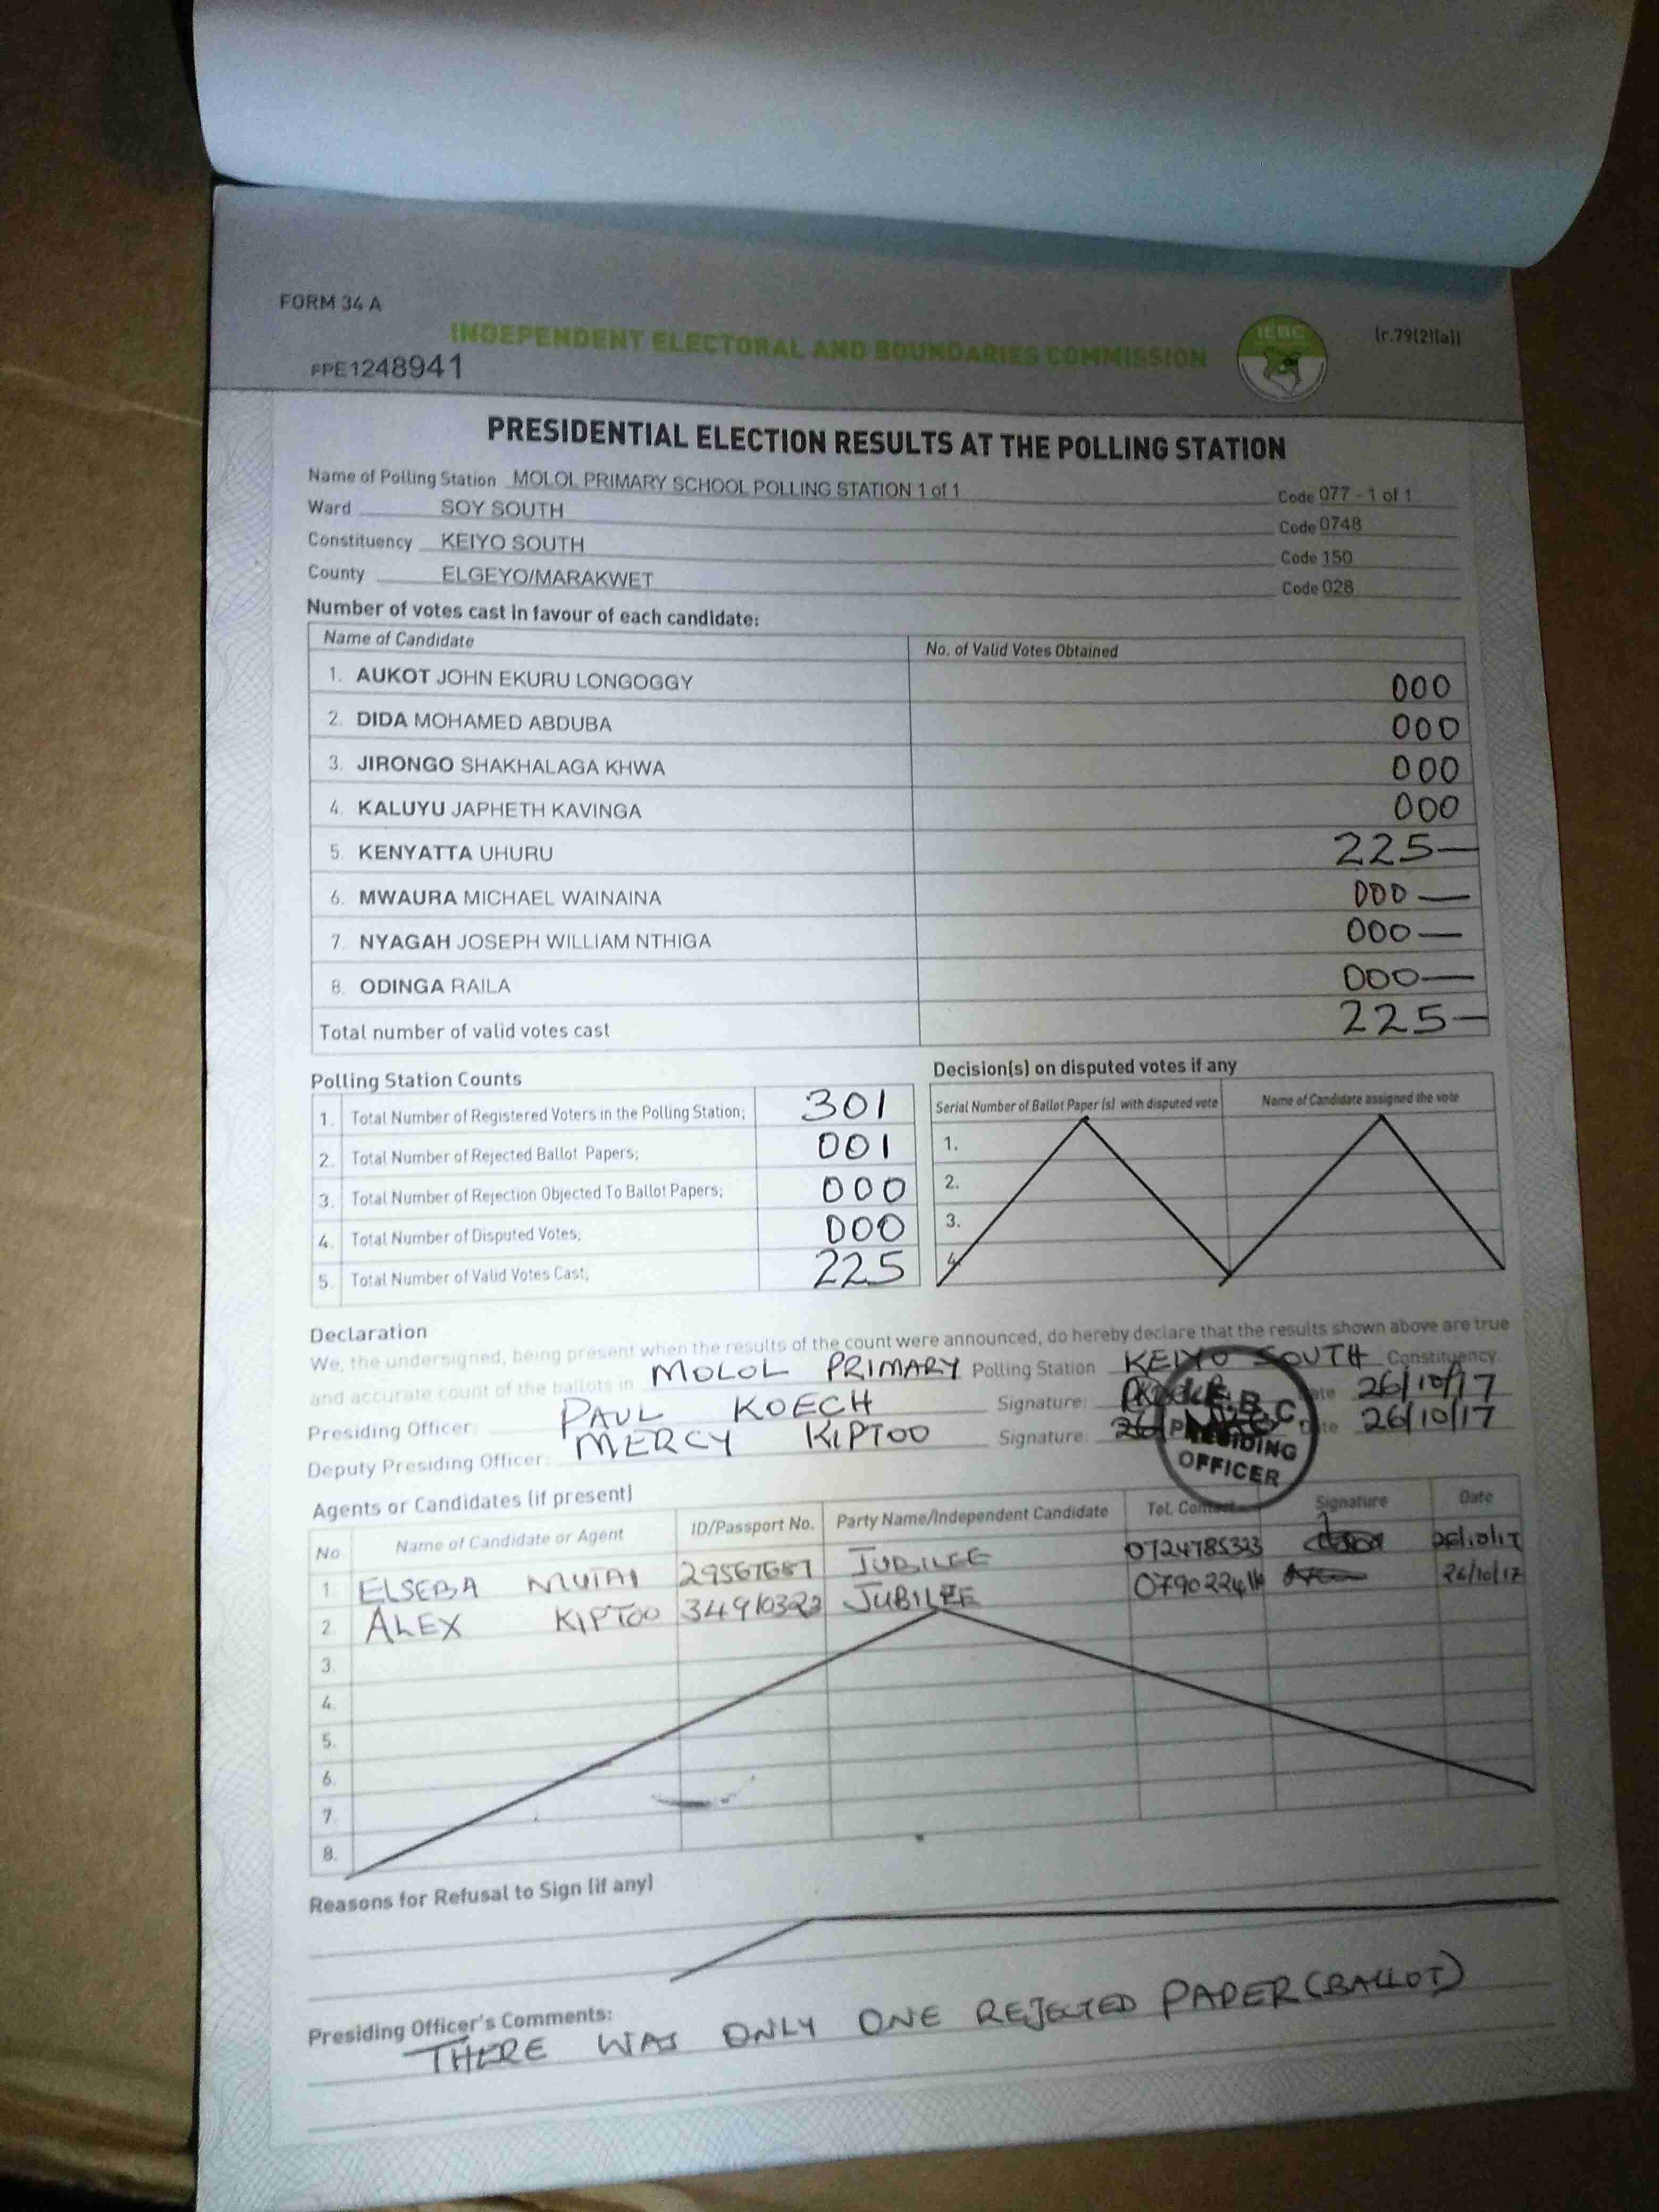 FORM 34 A
INDEPENDENT ELECTORAL AND BOUNDARIES COMMISSION
IEBC
(r.79(2)(a))
FPE1248941
PRESIDENTIAL ELECTION RESULTS AT THE POLLING STATION
Name of Polling Station MOLOL PRIMARY SCHOOL POLLING STATION 1 of 1 Code 077 - 1 of 1
Ward SOY SOUTH Code 0748
Constituency KEIYO SOUTH Code 150
County ELGEYO/MARAKWET Code 028
Number of votes cast in favour of each candidate:
Name of Candidate No. of Valid Votes Obtained
1. AUKOT JOHN EKURU LONGOGGY 000
2. DIDA MOHAMED ABDUBA 000
3. JIRONGO SHAKHALAGA KHWA 000
4. KALUYU JAPHETH KAVINGA 000
5. KENYATTA UHURU 225—
6. MWAURA MICHAEL WAINAINA 000—
7. NYAGAH JOSEPH WILLIAM NTHIGA 000—
8. ODINGA RAILA 000—
Total number of valid votes cast 225—
Polling Station Counts
1. Total Number of Registered Voters in the Polling Station; 301
2. Total Number of Rejected Ballot Papers; 001
3. Total Number of Rejection Objected To Ballot Papers; 000
4. Total Number of Disputed Votes; 000
5. Total Number of Valid Votes Cast; 225
Decision(s) on disputed votes if any
Serial Number of Ballot Paper (s) with disputed vote Name of Candidate assigned the vote
1.
2.
3.
4.
Declaration
We, the undersigned, being present when the results of the count were announced, do hereby declare that the results shown above are true
and accurate count of the ballots in MOLOL PRIMARY Polling Station KEIYO SOUTH Constituency.
Presiding Officer: PAUL KOECH Signature: Date 26/10/17
Deputy Presiding Officer: MERCY KIPTOO Signature: Date 26/10/17
I.E.B.C.
PRESIDING
OFFICER
Agents or Candidates (if present)
No. Name of Candidate or Agent ID/Passport No. Party Name/Independent Candidate Tel. Contact Signature Date
1. ELSEBA MUTAI JUBILEE 0724785323 26/10/17
2. ALEX KIPTOO 34910322 JUBILEE 26/10/17
3.
4.
5.
6.
7.
8.
Reasons for Refusal to Sign (if any)
Presiding Officer's Comments:
THERE WAS ONLY ONE REJECTED PAPER (BALLOT)